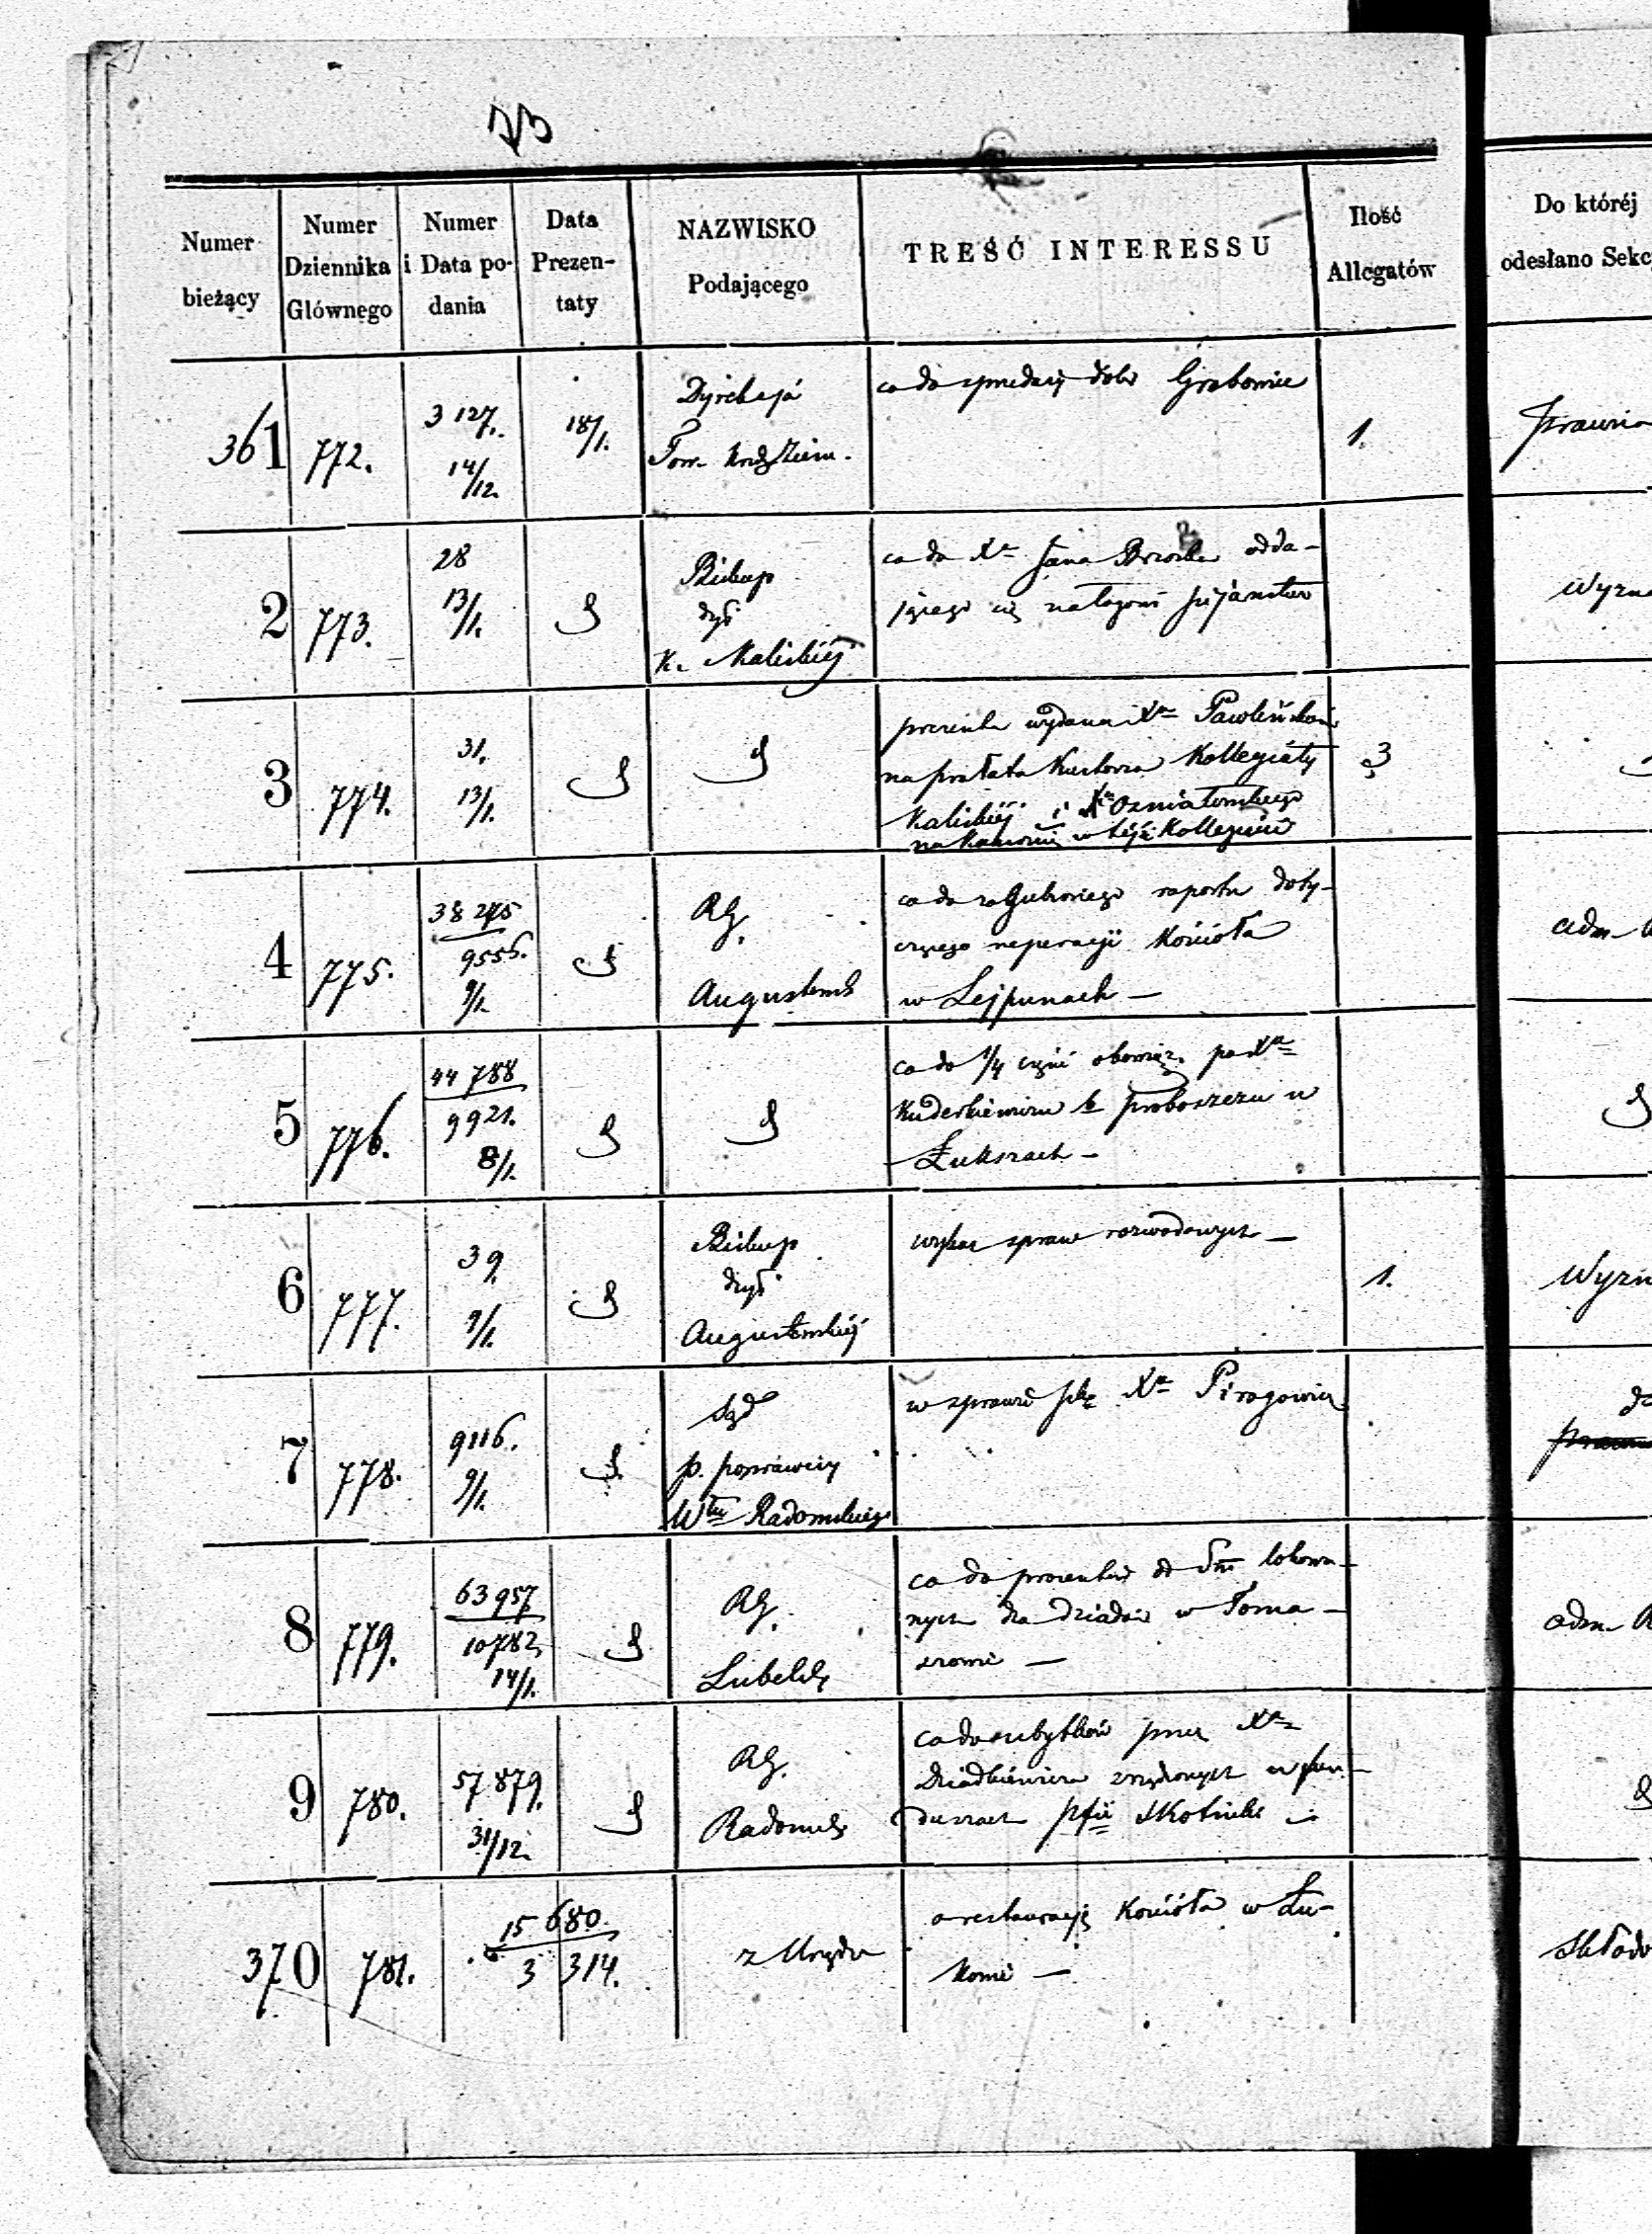 73
Numer bieżący
Numer Dziennika Głównego
Numer i Data podania
Data Prezentaty
NAZWISKO Podającego
TREŚĆ INTERESSU
Ilość Allegatów
Do któréj odesłano Sekc
361 772. 3127. 14/12. 18/1.
Dyrekcja
Tow. Kred. Ziem.
co do sprzedaży dóbr Grabowiec
1.
2 773. 28 13/1.
Biskup
dyś
K. Kaliskiéj
co do Xa Jana odda-
jącego się nałogowi pijaństwa
Wyzna
3 774. 31. 13/1.
prezenta wydana Xa Pawlińskiemu
na prałata Kustosza Kollegiaty
Kaliskiéj i Xa
na Kanonię w téjże Kollegiacie
3
4 775. 38245 9556. 9/1.
RG.
Augustows
co do zagubionego raportu doty-
czącego reperacji Kościoła
w Lejpunach —
adm
5 776. 44788 9921. 8/1.
co do 1/4 części obowiąz. po Xa
Kuderkiewiczu b proboszczu w
Łukszach —
6 777. 39. 9/1.
Biskup
dyś
Augustowskiéj
wykaz spraw rozwodowych —
1.
Wyzn
7 778. 9116. 9/1.
Sąd
p. poprawczy
Włu Radomskiego
w sprawie pko Xa Pirogowicz
8 779. 63957 10782 14/1.
RG.
Lubelsk
co do procentów od Sm lokowa-
nych dla dziadów w Toma-
szowie —
adm. R
9 780. 57879. 31/12.
RG.
Radomsk
co do ubytków przez Xa
Dziadkiewicza zrządzonych w fun-
duszach pfii Skotniki —
370 781. 15680 3314.
z Urzędu
o restauracyę Kościoła w Łu-
kowie —
Składo